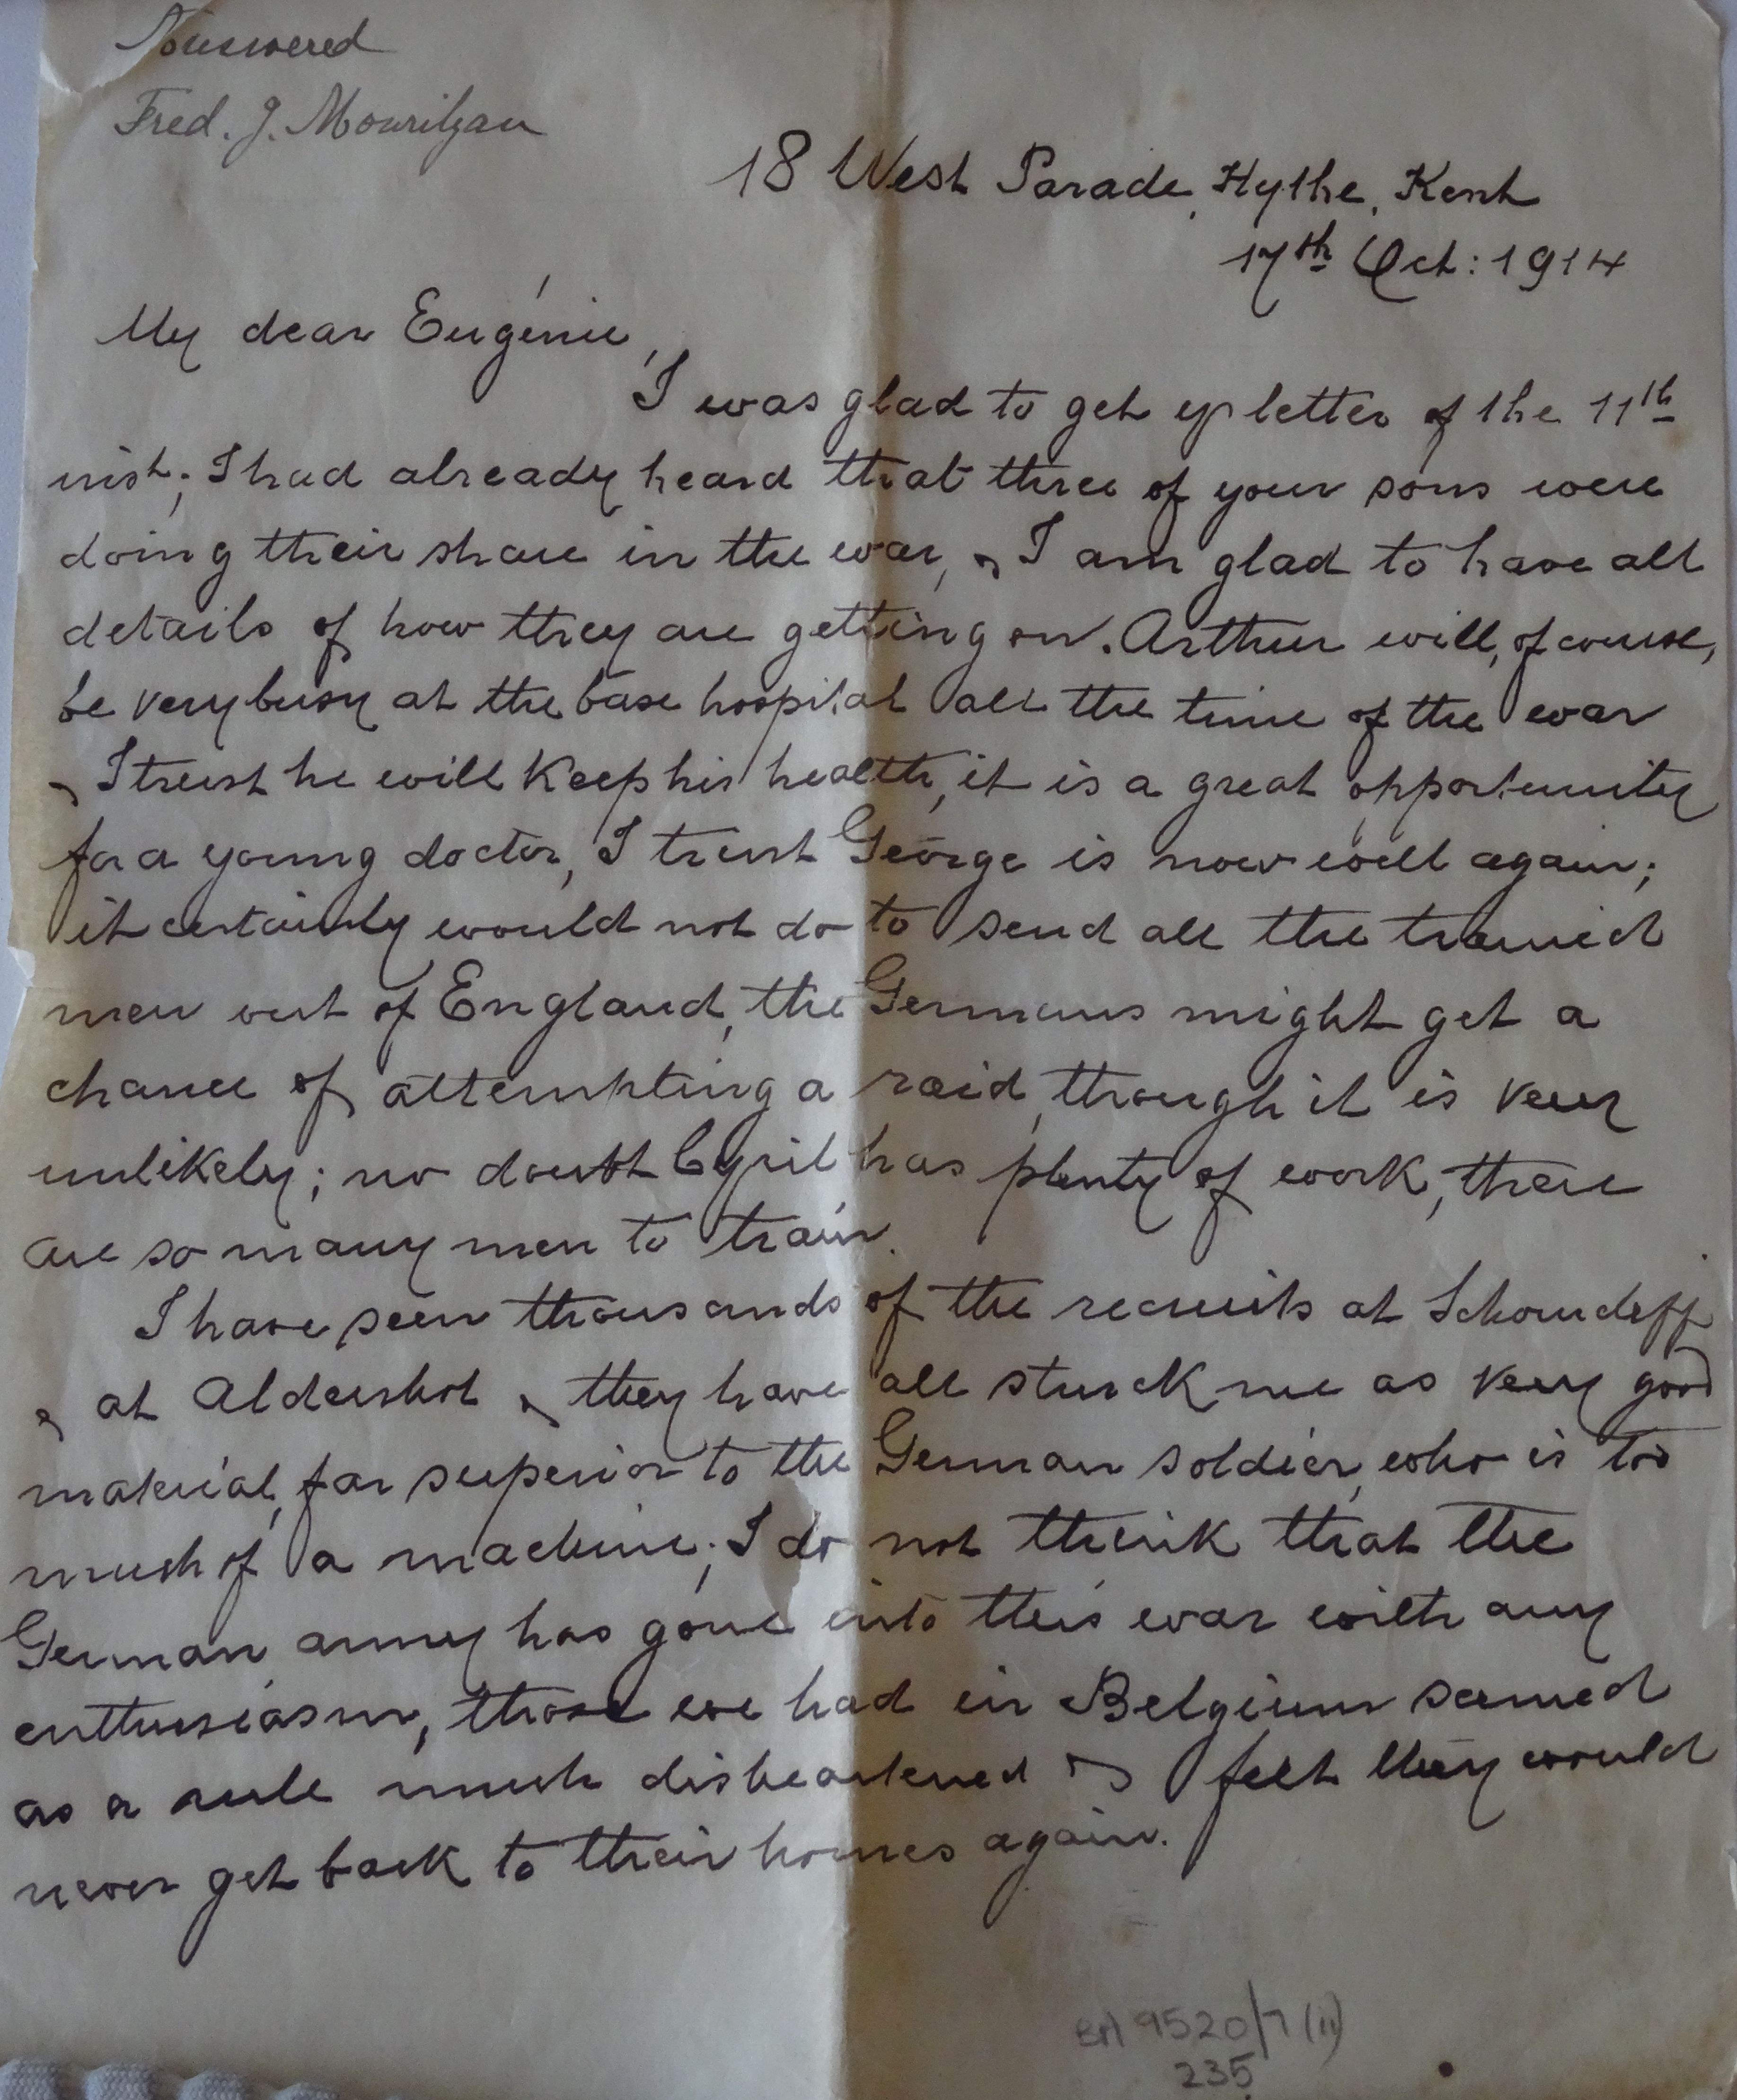 Answered
Fred. J. Mourilyan
18 West Parade, Hythe, Kent
17th Oct: 1914
My dear Eugénie,
I was glad to get yr letter of the 11th
inst; I had already heard that three of your sons were
doing their share in the war, & I am glad to have all
details of how they are getting on. Arthur will, of course,
be very busy at the base hospital all the time of the war
& I trust he will keep his health, it is a great opportunity
for a young doctor, I trust George is now well again;
it certainly would not do to send all the trained
men out of England, the Germans might get a
chance of attempting a raid, though it is very
unlikely; no doubt Cyril has plenty of work, there
are so many men to train.
I have seen thousands of the recruits at
& at Aldershot & they have all struck me as very good
material, far superior to the German soldier, who is too
much of a machine; I do not think that the
German army has gone into this war with any
enthusiasm, those we had in Belgium seemed
as a rule much disheartened & felt they would
never get back to their homes again.
BA 9520/7 (ii)
235